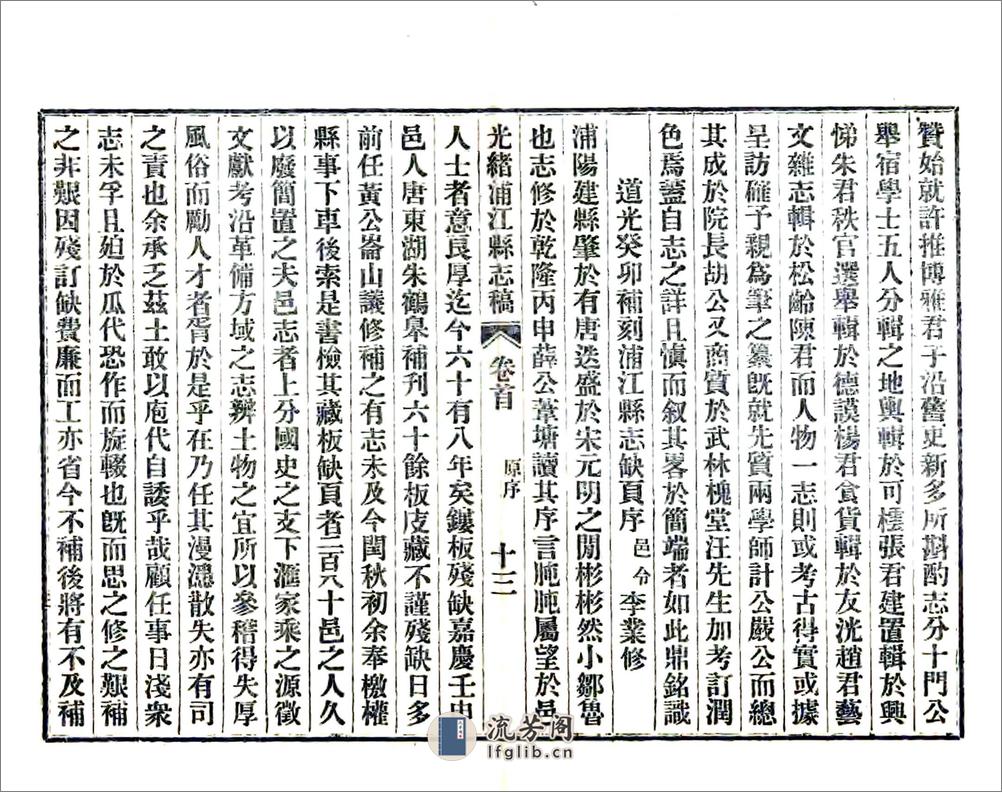 贊始就許推博雅君子沿舊更新多所斟酌志分十門公
舉宿學士五人分輯之地輿輯於可樓張君建置輯於興
悌朱君秩官選舉輯於德謨楊君食貨輯於友洸趙君藝
文雜志輯於松齡陳君而人物一志則或考古得實或據
呈訪確予親爲筆之纂旣就先質兩學師計公嚴公而總
其成於院長胡公又商質於武林槐堂汪先生加考訂潤
色焉蓋自志之詳且愼而叙其畧於簡端者如此鼎銘識
道光癸卯補刻浦江縣志缺頁序 邑令 李業修
浦陽建縣肇於有唐迭盛於宋元明之閒彬彬然小鄒魯
也志修於乾隆丙申薛公葦塘讀其序言肫肫屬望於邑
光緒浦江縣志稿 卷首 原序 十三
人士者意良厚迄今六十有八年矣鏤板殘缺嘉慶壬申
邑人唐東湖朱鶴皋補刊六十餘板庋藏不謹殘缺日多
前任黃公崙山議修補之有志未及今閏秋初余奉檄權
縣事下車後索是書檢其藏板缺頁者二百八十邑之人久
以廢簡置之夫邑志者上分國史之支下滙家乘之源徵
文獻考沿革備方域之志辨土物之宜所以參稽得失厚
風俗而勵人才者胥於是乎在乃任其漫漶散失亦有司
之責也余承乏茲土敢以庖代自諉乎哉顧任事日淺衆
志未孚且廹於瓜代恐作而旋輟也旣而思之修之艱補
之非艱因殘訂缺費廉而工亦省今不補後將有不及補
流芳阁
lfglib.cn